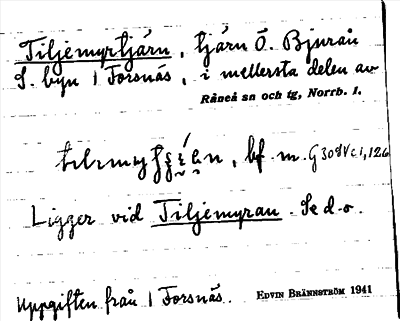 Tiljemyrtjärn, tjärn Ö. Bjuraå
S. byn 1 Forsnäs, i mellersta delen av
Råneå sn och tg, Norrb. l.
bf. m. G3084c1, 126
Ligger vid Tiljemyran. Se d.o.
Uppgiften från 1 Forsnäs. EDVIN BRÄNNSTRÖM 1941